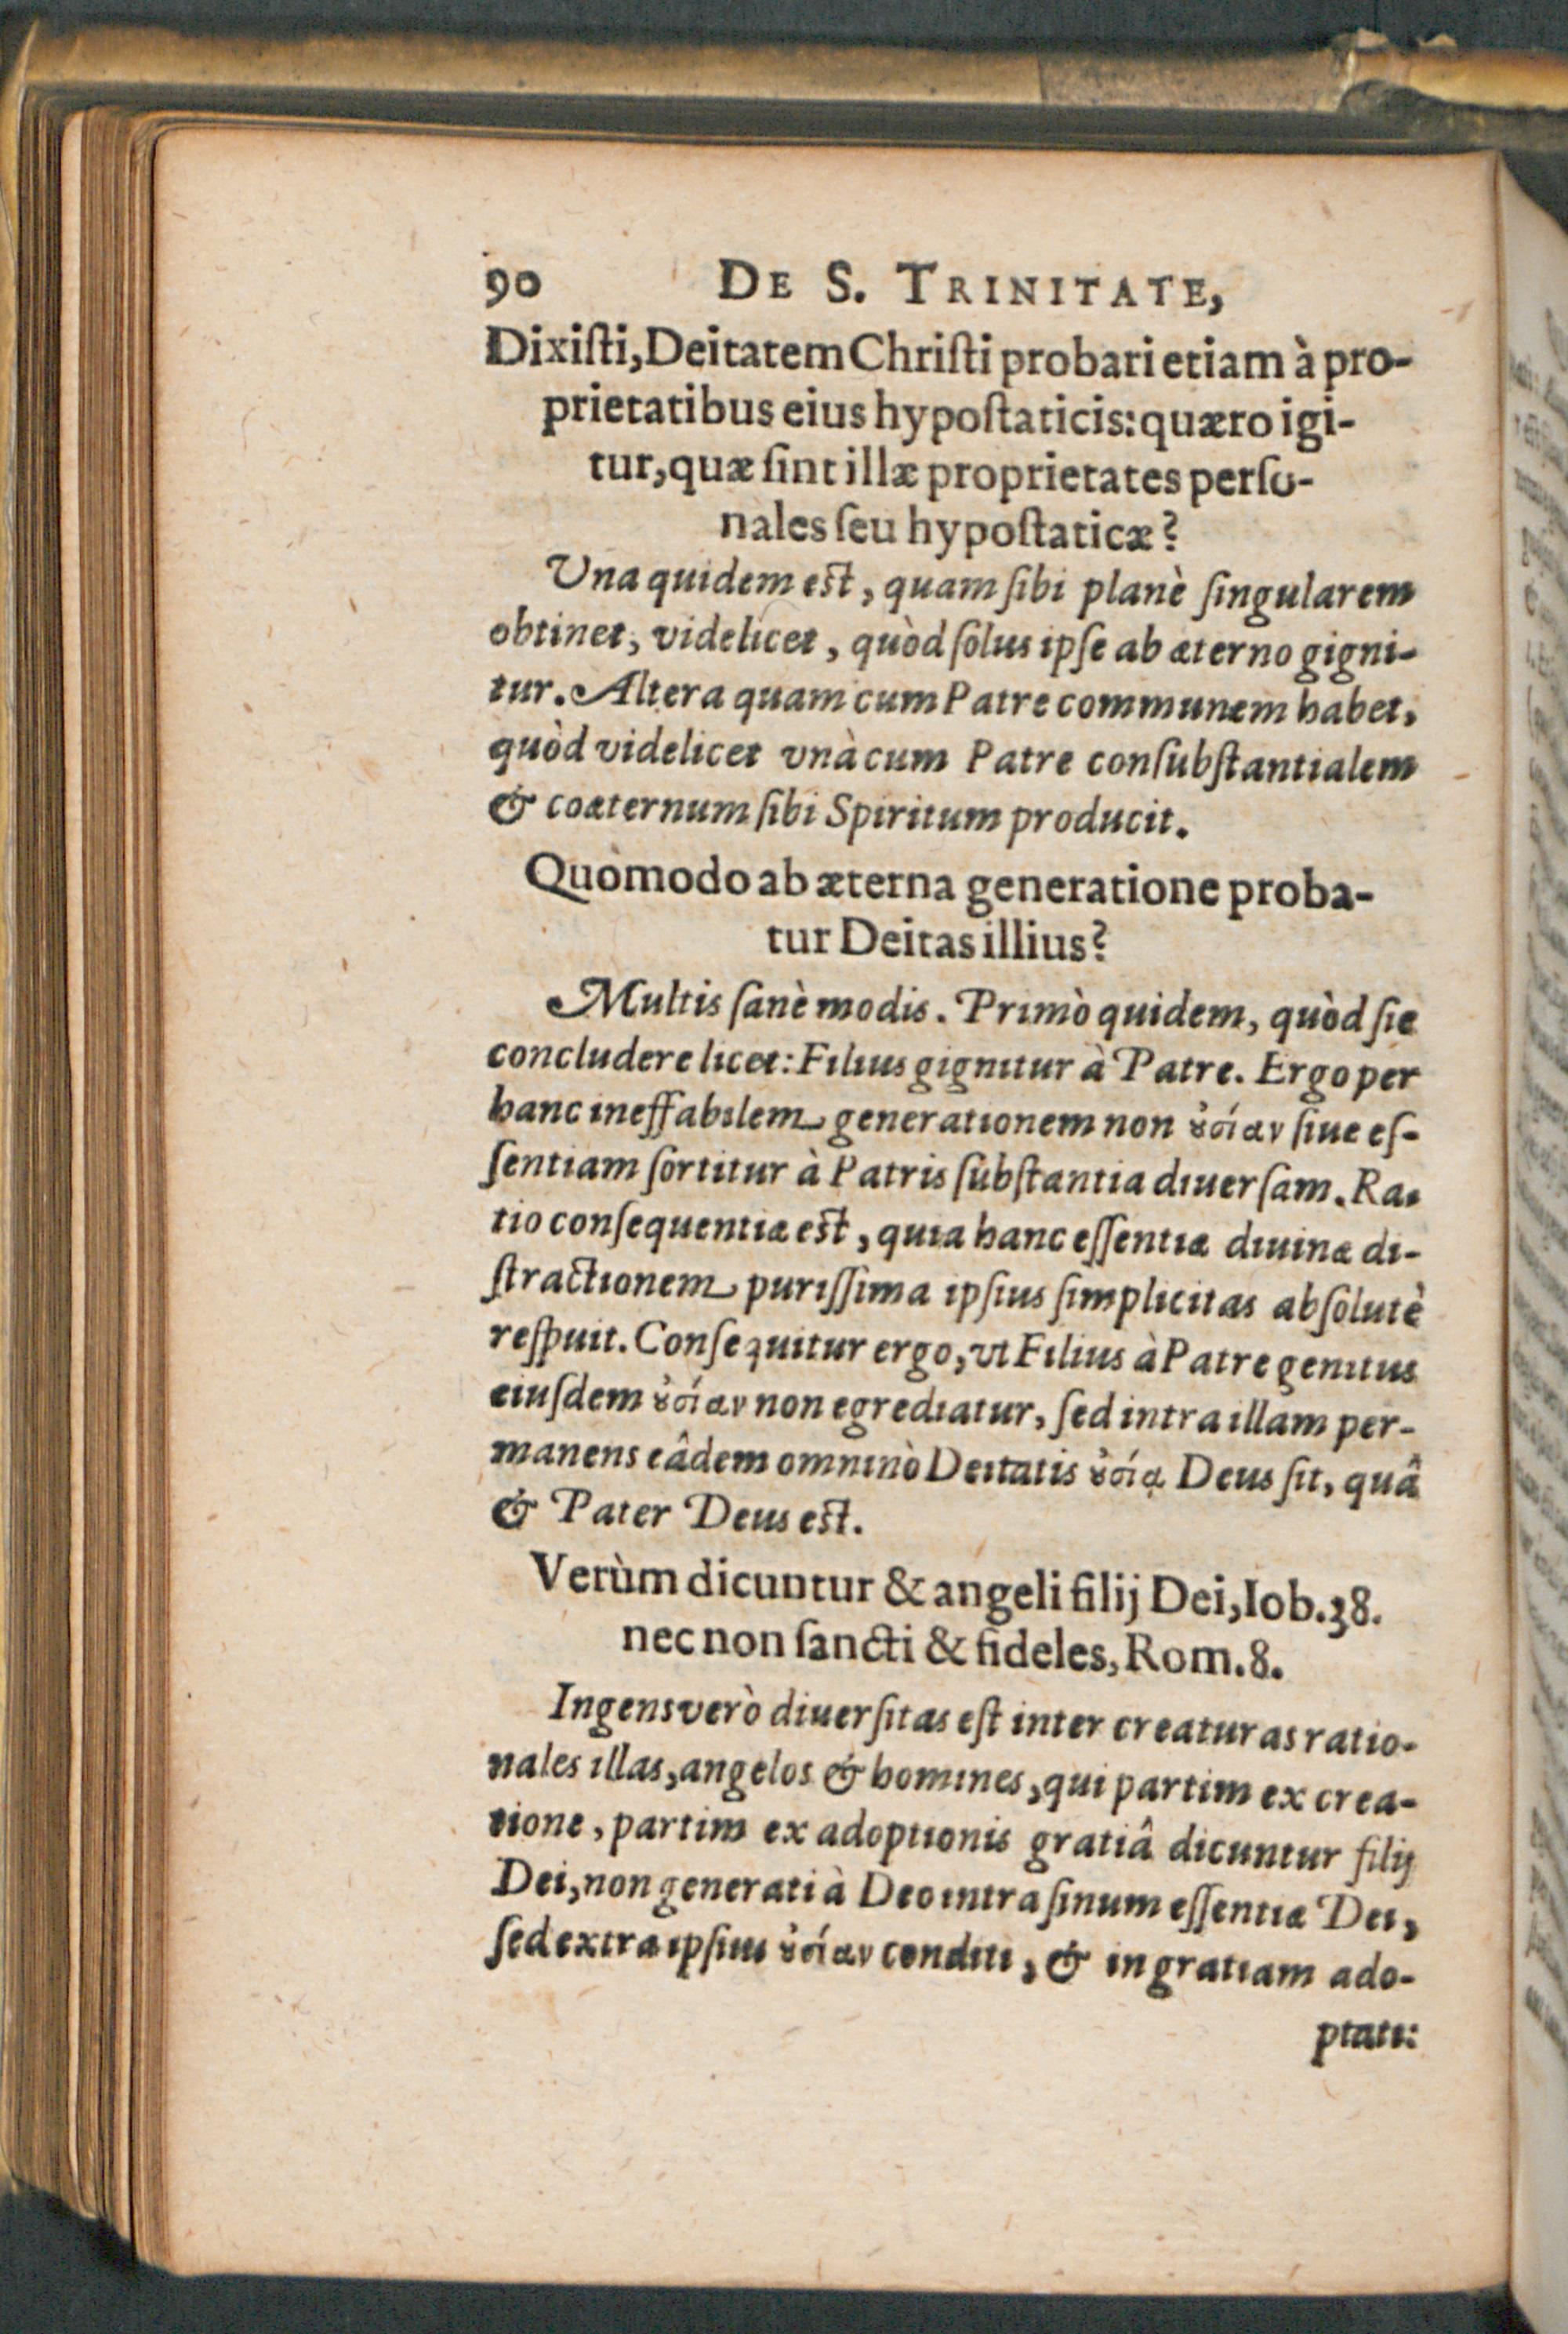 90 DE S. TRINITATE,
Dixiſti, Deitatem Chriſti probari etiam à pro-
prietatibus eius hypoſtaticis: quæro igi-
tur, quæ ſint illæ proprietates perſo-
nales ſeu hypoſtaticæ?
Vna quidem eſt, quam ſibi planè ſingularem
obtinet, videlicet, quòd ſolus ipſe ab æterno gigni-
tur. Altera quam cum Patre communem habet,
quòd videlicet vnà cum Patre conſubſtantialem
& coæternum ſibi Spiritum producit.
Quòmodo ab æterna generatione proba-
tur Deitas illius?
Multis ſanè modis. Primò quidem, quòd ſic
concludere licet: Filius gignitur à Patre. Ergo per
hanc ineffabilem generationem non ȣ̓σίαν ſiue eſ-
ſentiam ſortitur à Patris ſubſtantia diuerſam. Ra-
tio conſequentiæ eſt, quia hanc eſſentiæ diuinæ di-
ſtractionem puriſſima ipſius ſimplicitas abſolutè
reſpuit. Conſequitur ergo, vt Filius à Patre genitus
eiuſdem ȣ̓σίαν non egrediatur, ſed intra illam per-
manens eâdem omninò Deitatis ȣ̓σίᾳ Deus ſit, quâ
& Pater Deus eſt.
Verùm dicuntur & angeli filij Dei, Iob. 38.
nec non ſancti & fideles, Rom. 8.
Ingens verò diuerſitas eſt inter creaturas ratio-
nales illas, angelos & homines, qui partim ex crea-
tione, partim ex adoptionis gratiâ dicuntur filij
Dei, non generati à Deo intra ſinum eſſentiæ Dei,
ſed extra ipſius ȣ̓σίαν conditi, & in gratiam ado-
ptati: